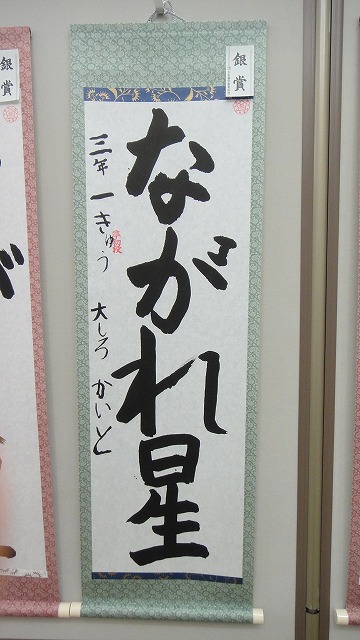 銀賞
ながれ星
三年 一きゅう 大しろ かいと
銀賞
が